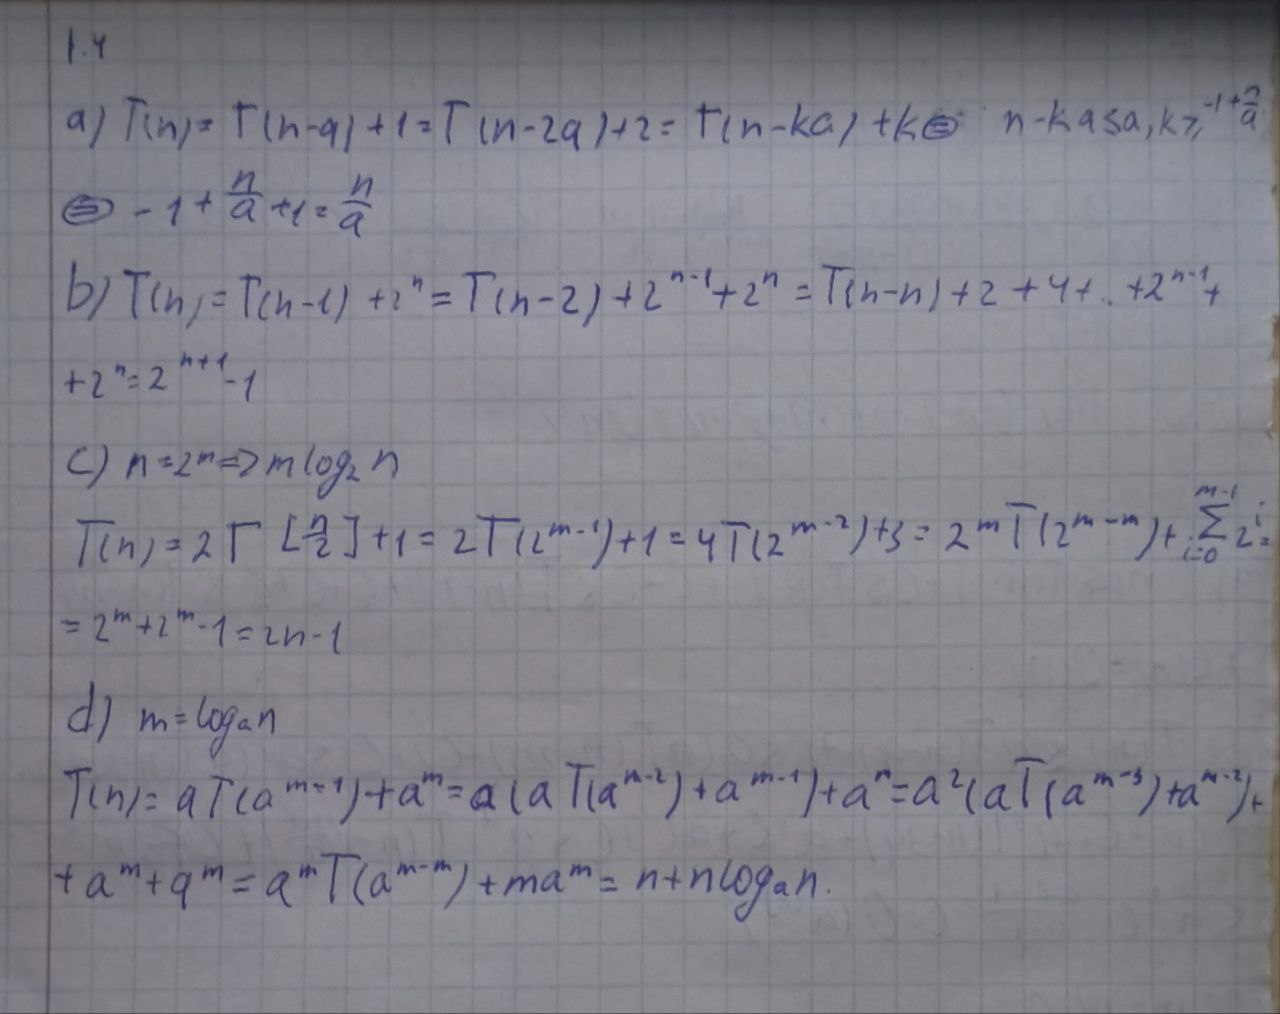 1.4
a) T(n) = T(n-a) + 1 = T(n-2a) + 2 = T(n-ka) + k ⊜ n-ka≤a, k≥ -1+n/a
⊜ -1 + n/a + 1 = n/a
b) T(n) = T(n-1) + 2^n = T(n-2) + 2^{n-1} + 2^n = T(n-n) + 2 + 4 + .. + 2^{n-1} +
+ 2^n = 2^{n+1} - 1
c) n = 2^m => m log₂ n
T(n) = 2T [n/2] + 1 = 2T(2^{m-1}) + 1 = 4T(2^{m-2}) + 3 = 2^m T(2^{m-m}) + ∑_{i=0}^{m-1} 2^i =
= 2^m + 2^m - 1 = 2n - 1
d) m = log_a n
T(n) = aT(a^{m-1}) + a^m = a(aT(a^{m-2}) + a^{m-1}) + a^m = a²(aT(a^{m-3}) + a^{m-2}) +
+ a^m + a^m = a^m T(a^{m-m}) + ma^m = n + n log_a n.